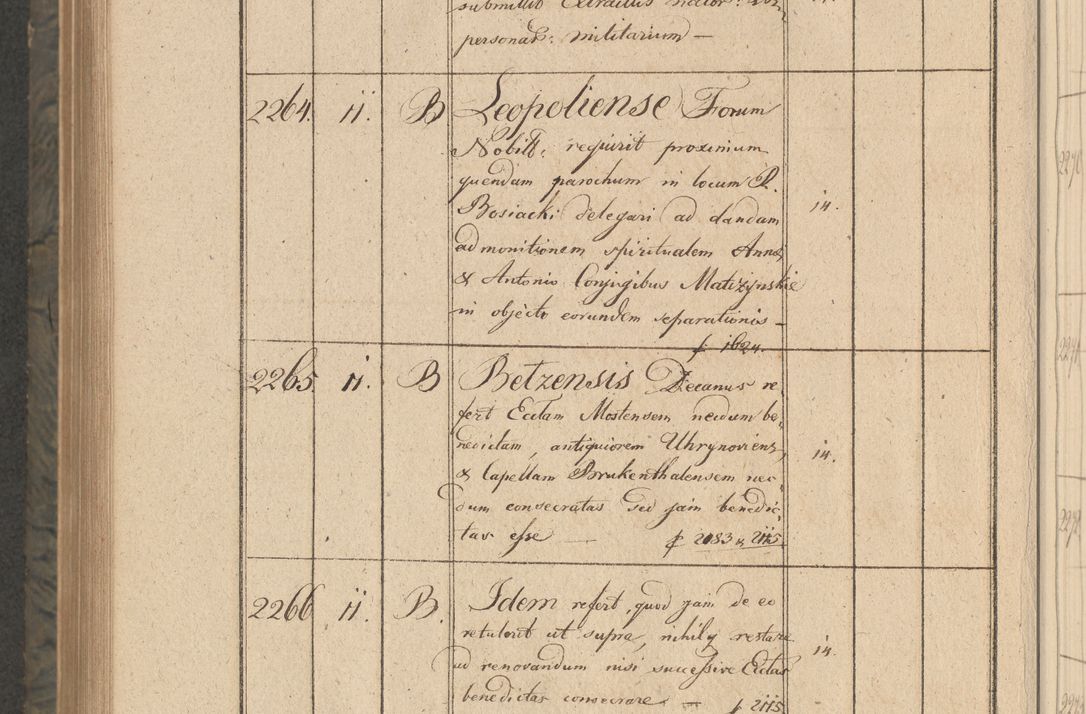 submittit Extractus
personar: militarium —
2264. 11. B Leopoliense Forum
Nobili: requirit proximum
quendam parochum in locum P.
Bosiacki delegari ad dandam
admonitionem spiritualem Annæ
& Antonio Conjugibus Matizynskie
in objecto eorundem separationis —
p. 1624.
14.
2265 11. B Betzensis Decanus re
fert Ecclam Mostensem necdum be-
nedictam, antiquiorem Uhrynoviens,
& Capellam Brukenthalensem nec-
dum consecratas sed jam benedic-
tas esse — p 2083 & 2115
14.
2266 11. B. Idem refert, quod jam de eo
retulerit ut supra, nihilq restare
ad renovandum nisi successive Ecclas
benedictas consecrare — p 2115
14.